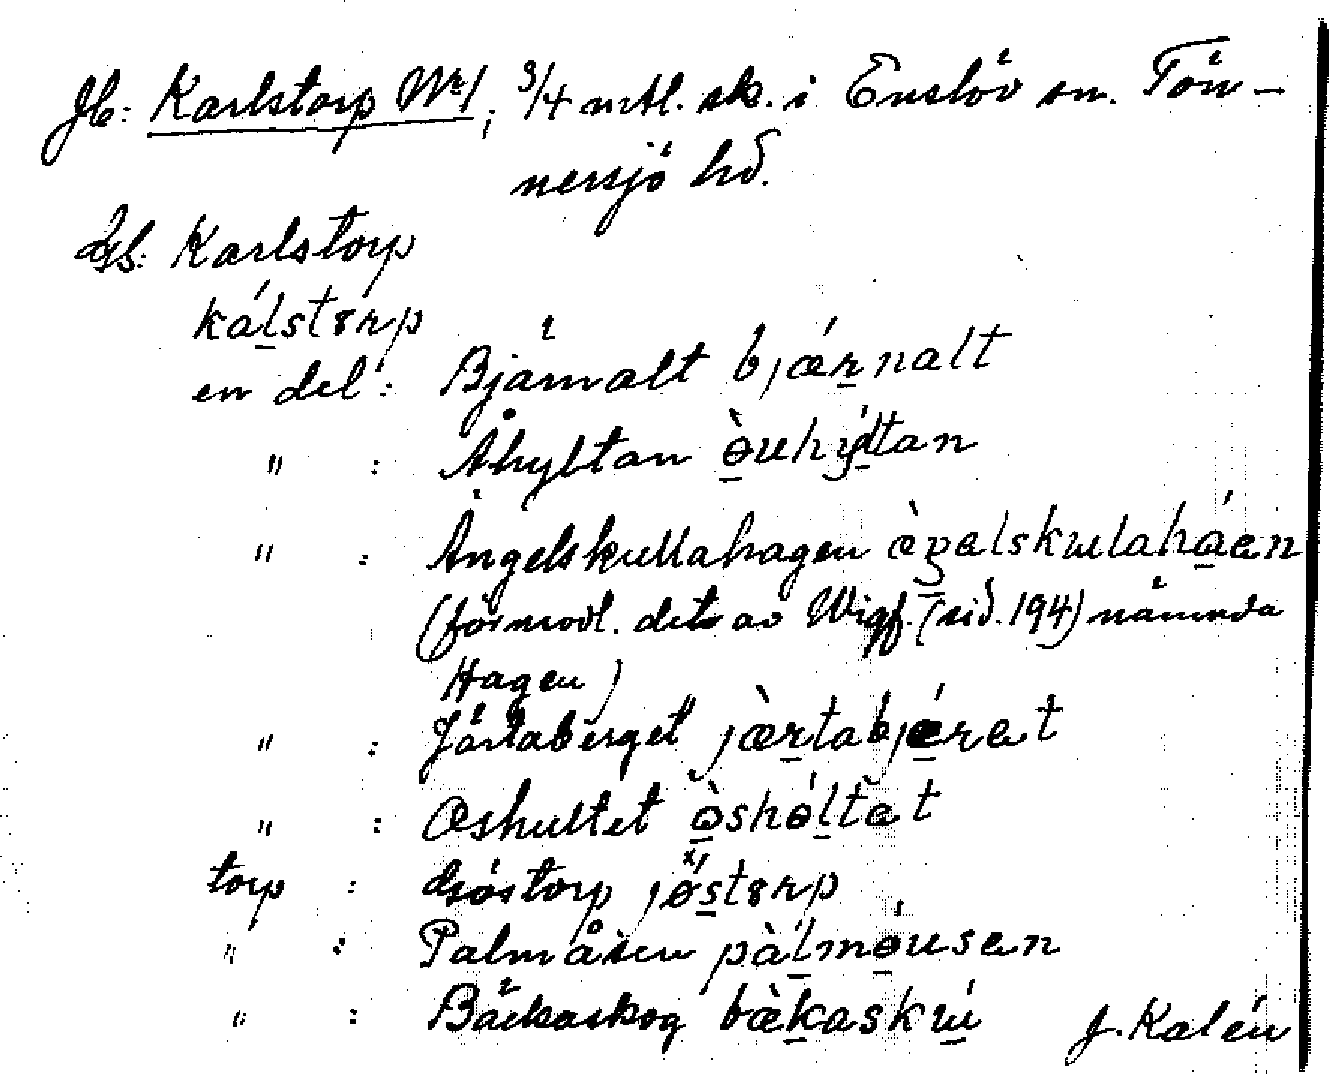 Jb: Karlstorp Nr 1; 3/4 mtl. sk. i Enslöv sn. Tön-
nersjö hd.
Karlstorp
kálstorp
en del: Bjärnalt bjǽrnalt
" : Åhyltan òuhýltan
" : Ängelskullahagen æ̀ŋəlskɯlaháən
(förmodl. det av Wigf. (sid. 194) nämnda
Hagen)
" : Järtaberget jæ̀rtabjérət
" : Oshultet òshóltət
torp : Gröstorp jø̀storp
" : Palmåsen pàlmóusən
" : Bäckaskog bæ̀kaskɯ́
J. Kalén